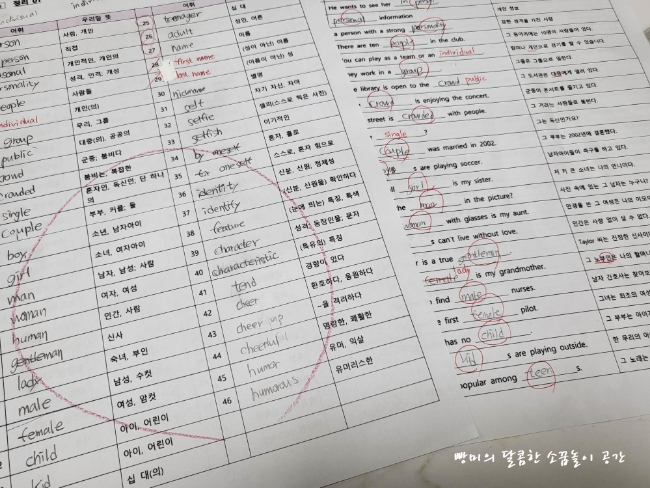 어휘
우리말 뜻
어휘
individual
person 사람, 개인
person 직접
personal 개인적인, 개인의
personality 성격, 인격, 개성
people 사람들
individual 개인(의)
group 무리, 그룹
public 대중(의), 공공의
crowd 군중, 붐비다
crowded 붐비는, 복잡한
single 혼자인, 독신인, 단 하나의
couple 부부, 커플, 둘
boy 소년, 남자아이
girl 소녀, 여자아이
man 남자, 남성, 사람
woman 여자, 여성
human 인간, 사람
gentleman 신사
lady 숙녀, 부인
male 남성, 수컷
female 여성, 암컷
child 아이, 어린이
kid 아이, 어린이
십 대(의)
25 teenager 십 대
26 adult 성인, 어른
27 name 이름
28 first name (성이 아닌) 이름
29 last name (이름이 아닌) 성
30 nickname 별명
31 self 자기 자신, 자아
32 selfie 셀피(스스로 찍은 사진)
33 selfish 이기적인
34 by oneself 혼자, 홀로
35 for oneself 스스로, 혼자 힘으로
36 identity 신분, 신원, 정체성
37 identify (신분, 신원을) 확인하다
38 feature (눈에 띄는) 특징, 특색
39 character 성격; 등장인물, 문자
40 characteristic (특유의) 특징
41 tend 경향이 있다
42 cheer 환호하다, 응원하다
43 cheer up ~을 격려하다
44 cheerful 명랑한, 쾌활한
45 humor 유머, 익살
46 humorous 유머러스한
He wants to see her in person
personal information 개인 정보
a person with a strong personality 강한 성격을 가진 사람
There are ten people in the club.
You can play as a team or an individual
They work in a group. 그들은 그룹으로 일한다.
library is open to the crowd public 그 도서관은 대중에게 열려 있다.
Crowd is enjoying the concert. 군중이 콘서트를 즐기고 있다.
street is crowded with people. 그 거리는 사람들로 붐빈다.
single ? 그는 독신인가요?
couple was married in 2002. 그 부부는 2002년에 결혼했다.
s are playing soccer. 남자아이들이 축구를 하고 있다.
girl is my sister. 저 키 큰 소녀는 나의 언니이다.
man in the picture? 사진 속에 있는 그 남자는 누구니?
woman with glasses is my aunt. 안경을 쓴 그 여성은 나의 이모이다.
s can't live without love. 인간은 사랑 없이 살 수 없다.
is a true gentleman. Taylor 씨는 진정한 신사이다
female lady is my grandmother. 그 노부인은 나의 할머니
find male nurses. 남자 간호사는 찾아보
first female pilot. 그녀는 최초의 여성
has no child 그 부부는 아이가
kid s are playing outside. 한 무리의 아이
popular among teen s. 그 노래는
빵미의 달콤한 소꿉놀이 공간